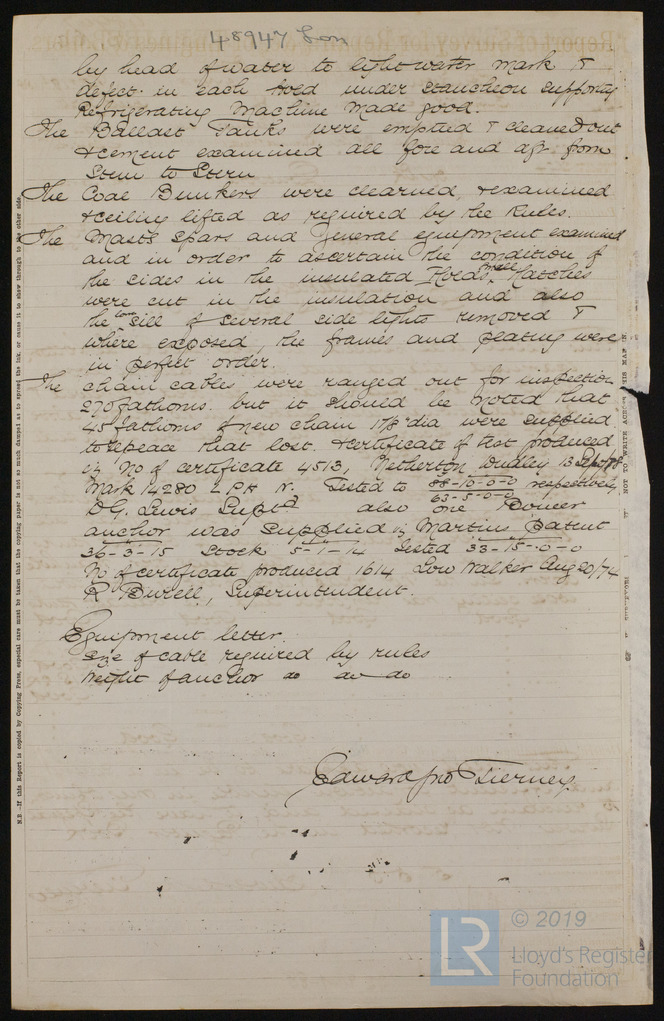 48947 Lon
by head of water to light water mark &
defect in each Hold under stancheon supporting
Refrigerating Machine made good.
The Ballast Tanks were emptied & cleaned out
& cement examined all fore and aft from
Stem to Stern
The Coal Bunkers were cleared, & examined
& ceiling lifted as required by the Rules.
The Masts Spars and General equipment examined
and in order to ascertain the condition of
the sides in the insulated Holds, small Hatches
were cut in the insulation and also
the sill of several side lights removed &
where exposed, the frames and plating were
in perfect order.
The chain cables were ranged out for inspection
270 fathoms. but it should be noted that
45 fathoms of new chain dia were supplied
to replace that lost. & certificate of test produced
No of certificate 4513, Netherton, Dudley 13 Sept
Mark 14280 L.P.H N. Tested to 88-10-0-0 respectively
63-5-0-0
D G. Lewis Supt also one Bower
anchor was supplied Martins Patent
36-3-15 Stock 5-1-14 Tested 33-15-0-0
No of certificate produced 1614 Low Walker Aug 20/74
R Burell, Superintendent.
Equipment letter.
Size of cable required by rules
Weight of anchor do do do
Edward Jno Tierney
N.B.—If this Report is copied by Copying Press, especial care must be taken that the copying paper is not so much damped as to spread the ink, or cause it to show through to the other side.
NOT TO WRITE ACROSS THIS MAR IN
LR
© 2019
Lloyd's Register
Foundation